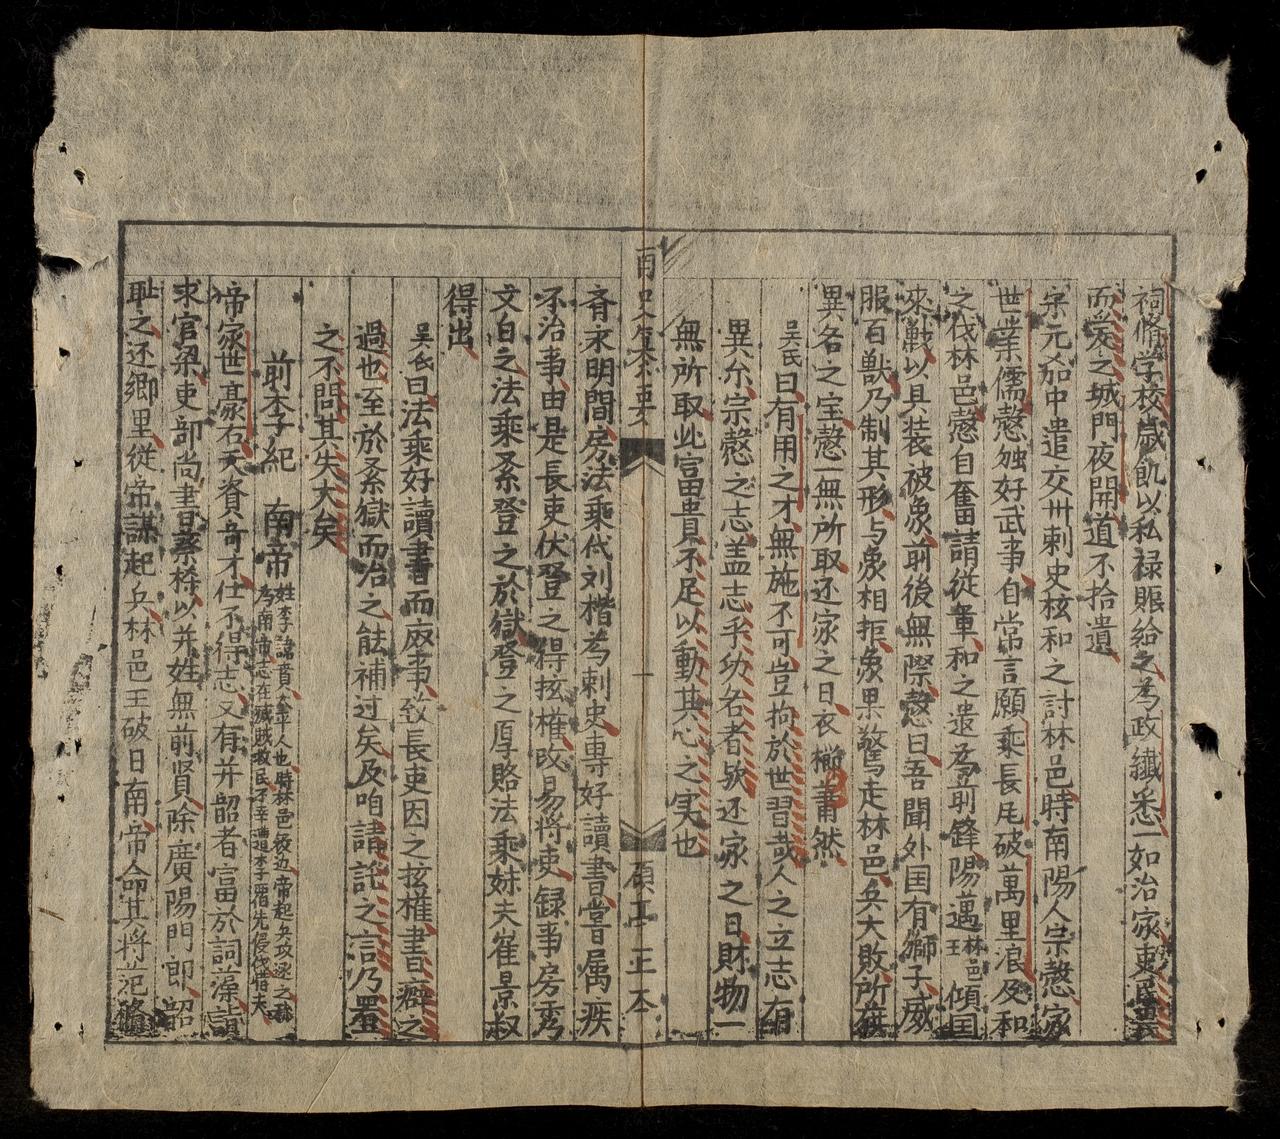 祠脩学校歲飢以私禄賑給之為政纎悉一如治家吏民畏
而爱之城門夜開道不拾遺
宋元加中遣交州刺史核和之討林邑時南陽人宗慤家
世業儒慤独好武事自常言願乘長凨破萬里浪及和
之伐林邑慤自奮請從軍和之遣為前鋒陽邁林邑王傾国
來戰以具装被象前後無際慤曰吾聞外国有獅子威
服百獣乃制其形与象相拒象果驚走林邑兵大敗所获
異名之宝慤一無所取还家之日衣櫛蕭然
吴氏曰有用之才無施不可豈拘於世習哉人之立志有
異尒宗慤之志盖志乎功名者欤还家之日財物一
無所取此富貴不足以動其心之実也
南史集要
一
碩亭正本
斉永明間房法乘代刘楷為刺史専好讀書嘗属疾
不治事由是長吏伏登之得㧓權改易将吏録事房秀
文白之法乘系登之於獄登之厚賂法乘妹夫崔景叔
得出
吴氏曰法乘好讀書而废事致長吏因之㧓權書癖之
過也至於系獄而治之䏻補过矣及咱請託之言乃置
之不問其失大矣
前李子紀　南帝姓李諱賁太平人也時林邑侵边帝起兵攻逐之称為南帝志在滅賊救民不幸遭李覇先侵伐惜夫
帝家世豪右天資奇才仕不得志又有并韶者富於詞藻詣
求官梁吏部尚書蔡樽以并姓無前贤除廣陽門郎韶
耻之还鄉里從帝謀起兵林邑王破日南帝命其将范脩